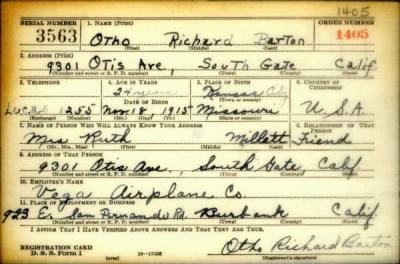 1405
SERIAL NUMBER 1. NAME (Print) ORDER NUMBER
3563 Otho Richard Barton 1405
(First) (Middle) (Last)
2. ADDRESS (Print)
9301 Otis Ave, South Gate Calif
(Number and street or R. F. D. number) (Town) (County) (State)
3. TELEPHONE 4. AGE IN YEARS 5. PLACE OF BIRTH 6. COUNTRY OF CITIZENSHIP
24 Kansas City
DATE OF BIRTH (Town or county)
Lucas 1255 Nov 18 1915 Missouri U. S. A.
(Exchange) (Number) (Mo.) (Day) (Yr.) (State or country)
7. NAME OF PERSON WHO WILL ALWAYS KNOW YOUR ADDRESS 8. RELATIONSHIP OF THAT PERSON
Ruth Millett Friend
(Mr., Mrs., Miss) (First) (Middle) (Last)
9. ADDRESS OF THAT PERSON
9301 Otis Ave. South Gate Calif
(Number and street or R. F. D. number) (Town) (County) (State)
10. EMPLOYER'S NAME
Vega Airplane Co.
11. PLACE OF EMPLOYMENT OR BUSINESS
923 E. San Fernando Rd. Burbank Calif.
(Number and street or R. F. D. number) (Town) (County) (State)
I AFFIRM THAT I HAVE VERIFIED ABOVE ANSWERS AND THAT THEY ARE TRUE.
REGISTRATION CARD
D. S. S. Form 1 (over) Otho Richard Barton
(Registrant's signature)